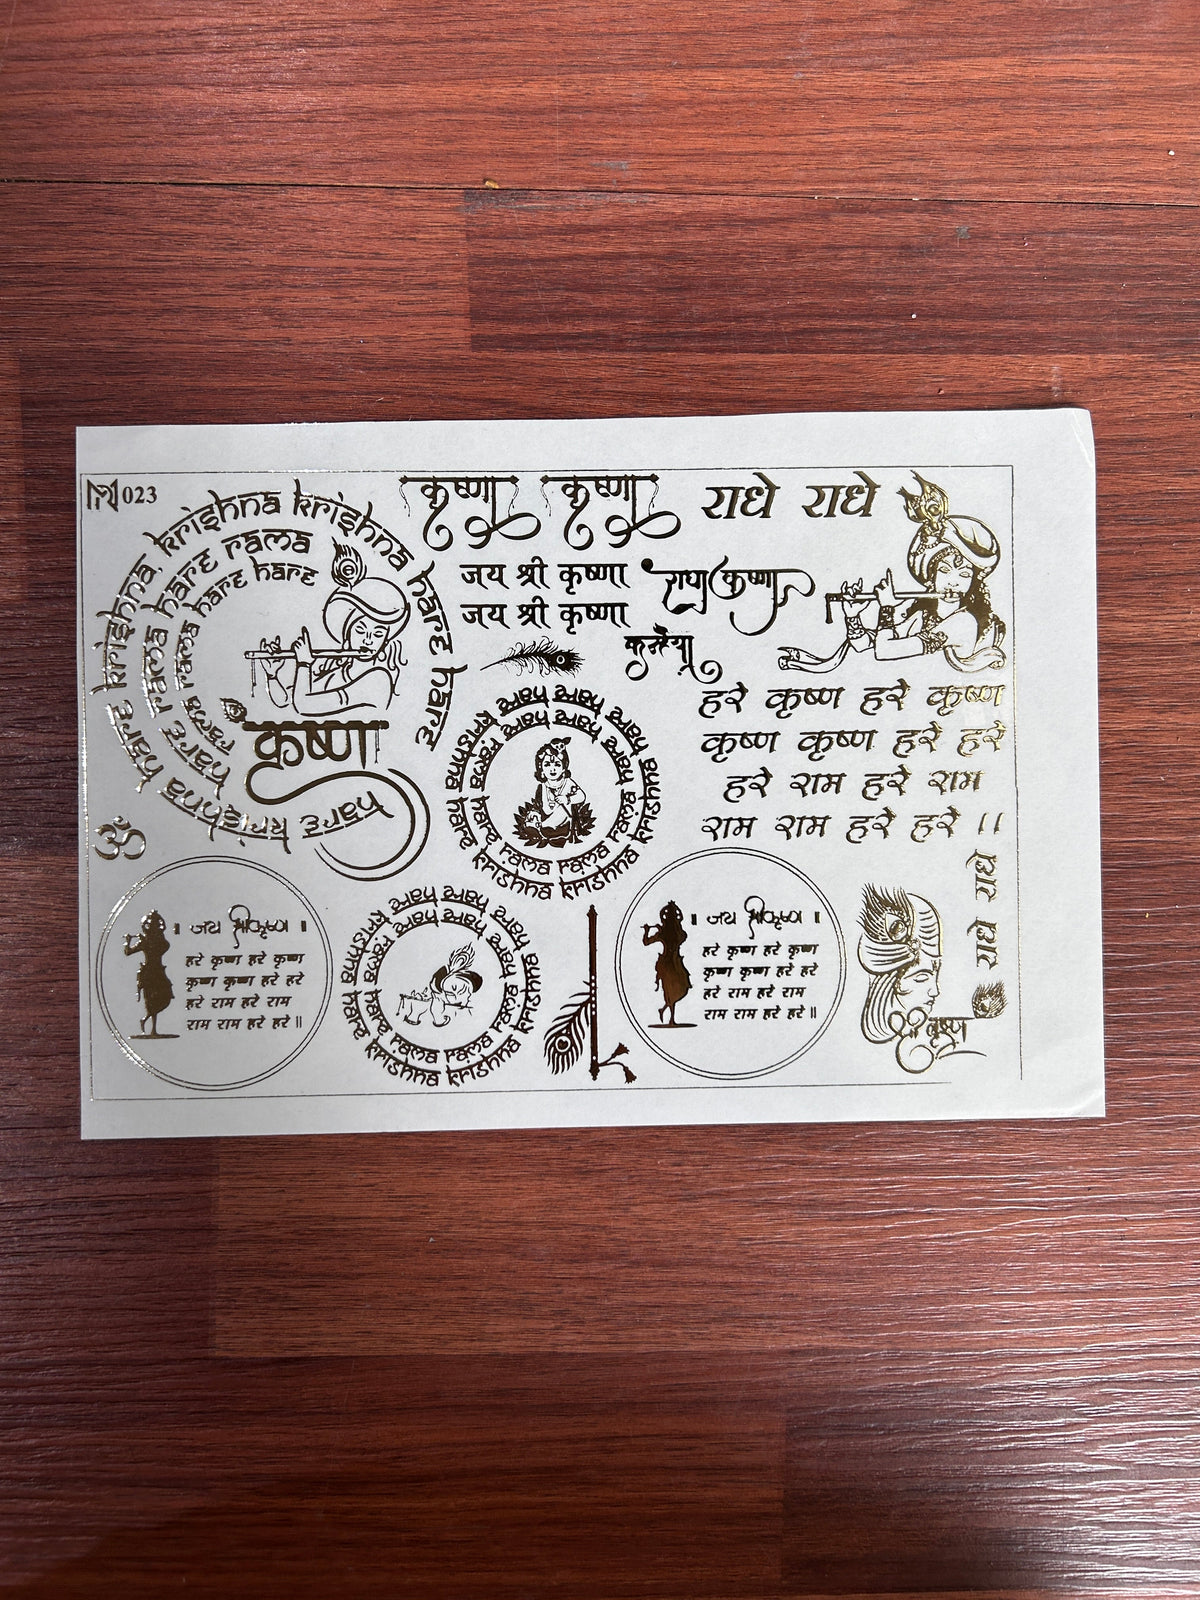 023
krishna, krishna krishna hare hare
hare krishna hare krishna
rama hare rama
hare rama
rama rama hare hare
कृष्णा
कृष्णा
कृष्णा
राधे राधे
जय श्री कृष्णा
जय श्री कृष्णा
राधा कृष्णा
कन्हैया
हरे कृष्ण हरे कृष्ण
कृष्ण कृष्ण हरे हरे
हरे राम हरे राम
राम राम हरे हरे ।।
hare krishna hare krishna krishna krishna hare hare
hare rama hare rama rama rama hare hare
ॐ
॥ जय श्रीकृष्ण ॥
हरे कृष्ण हरे कृष्ण
कृष्ण कृष्ण हरे हरे
हरे राम हरे राम
राम राम हरे हरे ॥
hare krishna hare krishna krishna krishna hare hare
hare rama hare rama rama rama hare hare
॥ जय श्रीकृष्ण ॥
हरे कृष्ण हरे कृष्ण
कृष्ण कृष्ण हरे हरे
हरे राम हरे राम
राम राम हरे हरे ॥
श्री कृष्ण
राधे राधे